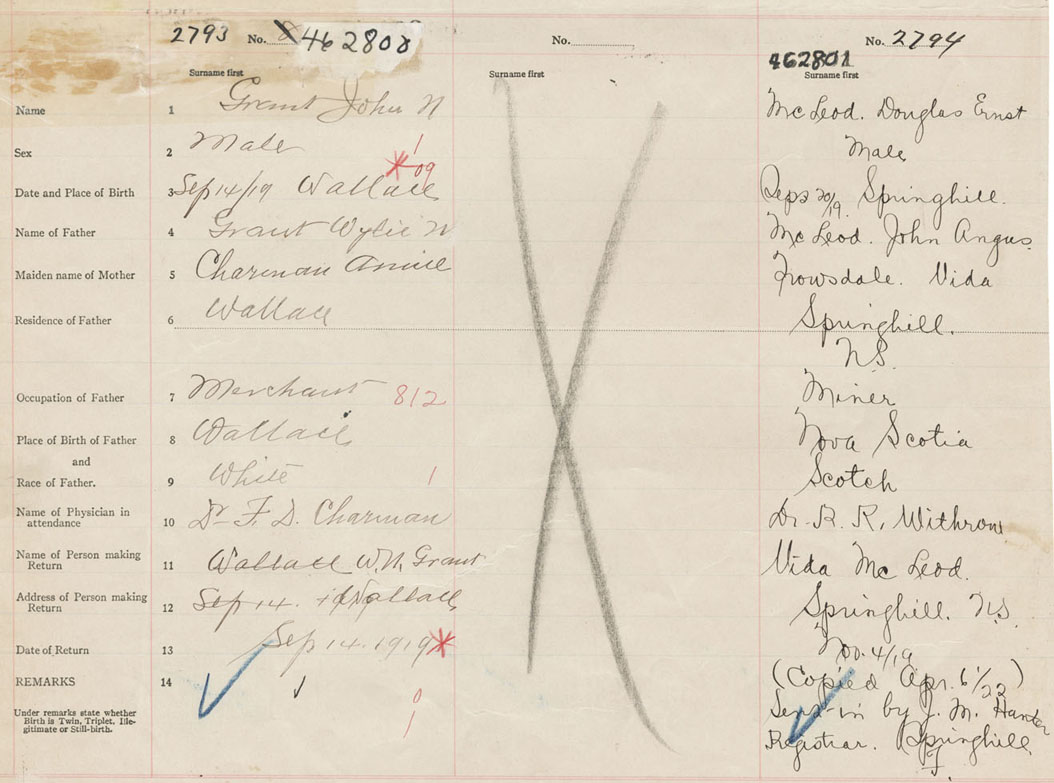 2793 No. 462808
No.
No. 2794
462801
Surname first
Surname first
Surname first
Name 1 Grant John N McLeod. Douglas Ernst
Sex 2 Male 1 Male
* 09
Date and Place of Birth 3 Sep 14/19 Wallace Sep 20/19. Springhill.
Name of Father 4 Grant Wylie N McLeod. John Angus
Maiden name of Mother 5 Charman Annie Trowsdale. Vida
Residence of Father 6 Wallace Springhill.
N.S.
Occupation of Father 7 Merchant 812 Miner
Place of Birth of Father 8 Wallace Nova Scotia
and
Race of Father. 9 White 1 Scotch
Name of Physician in
attendance 10 Dr F. D. Charman Dr. R. R. Withrow
Name of Person making
Return 11 Wallace W. N. Grant Vida McLeod.
Address of Person making
Return 12 Sep 14. Wallace Springhill. N.S.
Date of Return 13 Sep 14. 1919 * Nov. 4/19
REMARKS 14 (Copied Apr. 6/22)
Under remarks state whether
Birth is Twin, Triplet, Ille-
gitimate or Still-birth.
0
1
Sent in by J. M. Hunter
Registrar. Springhill